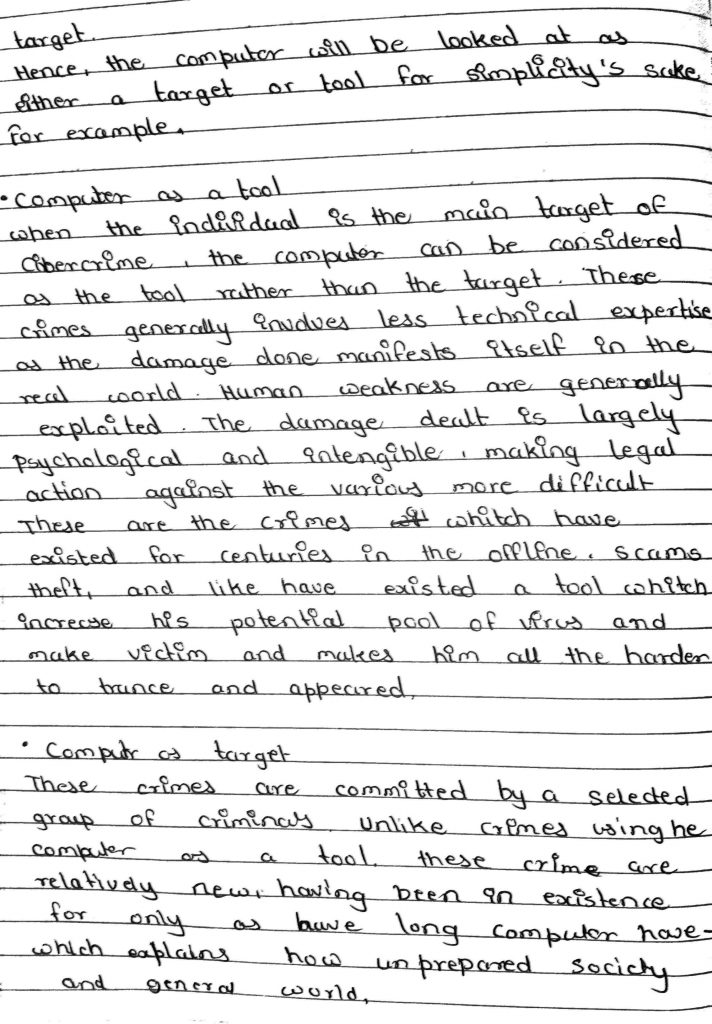 target.
Hence, the computer will be looked at as
either a target or tool for simplicity's sake
for example.
• Computer as a tool
when the individual is the main target of
Cibercrime, the computer can be considered
as the tool rather than the target. These
crimes generally involves less technical expertise
as the damage done manifests itself in the
real world. Human weakness are generally
exploited. The damage dealt is largely
Psychological and intengible, making legal
action against the various more difficult
These are the crimes whitch have
existed for centuries in the offline. scams
theft, and like have existed a tool whitch
increase his potential pool of virus and
make victim and makes him all the harder
to trance and appeared.
• Computr as target
These crimes are committed by a selected
group of criminals. Unlike crimes using he
computer as a tool. these crime are
relatively new, having been in existence
for only as have long computer have-
which explains how unprepared society
and general world.